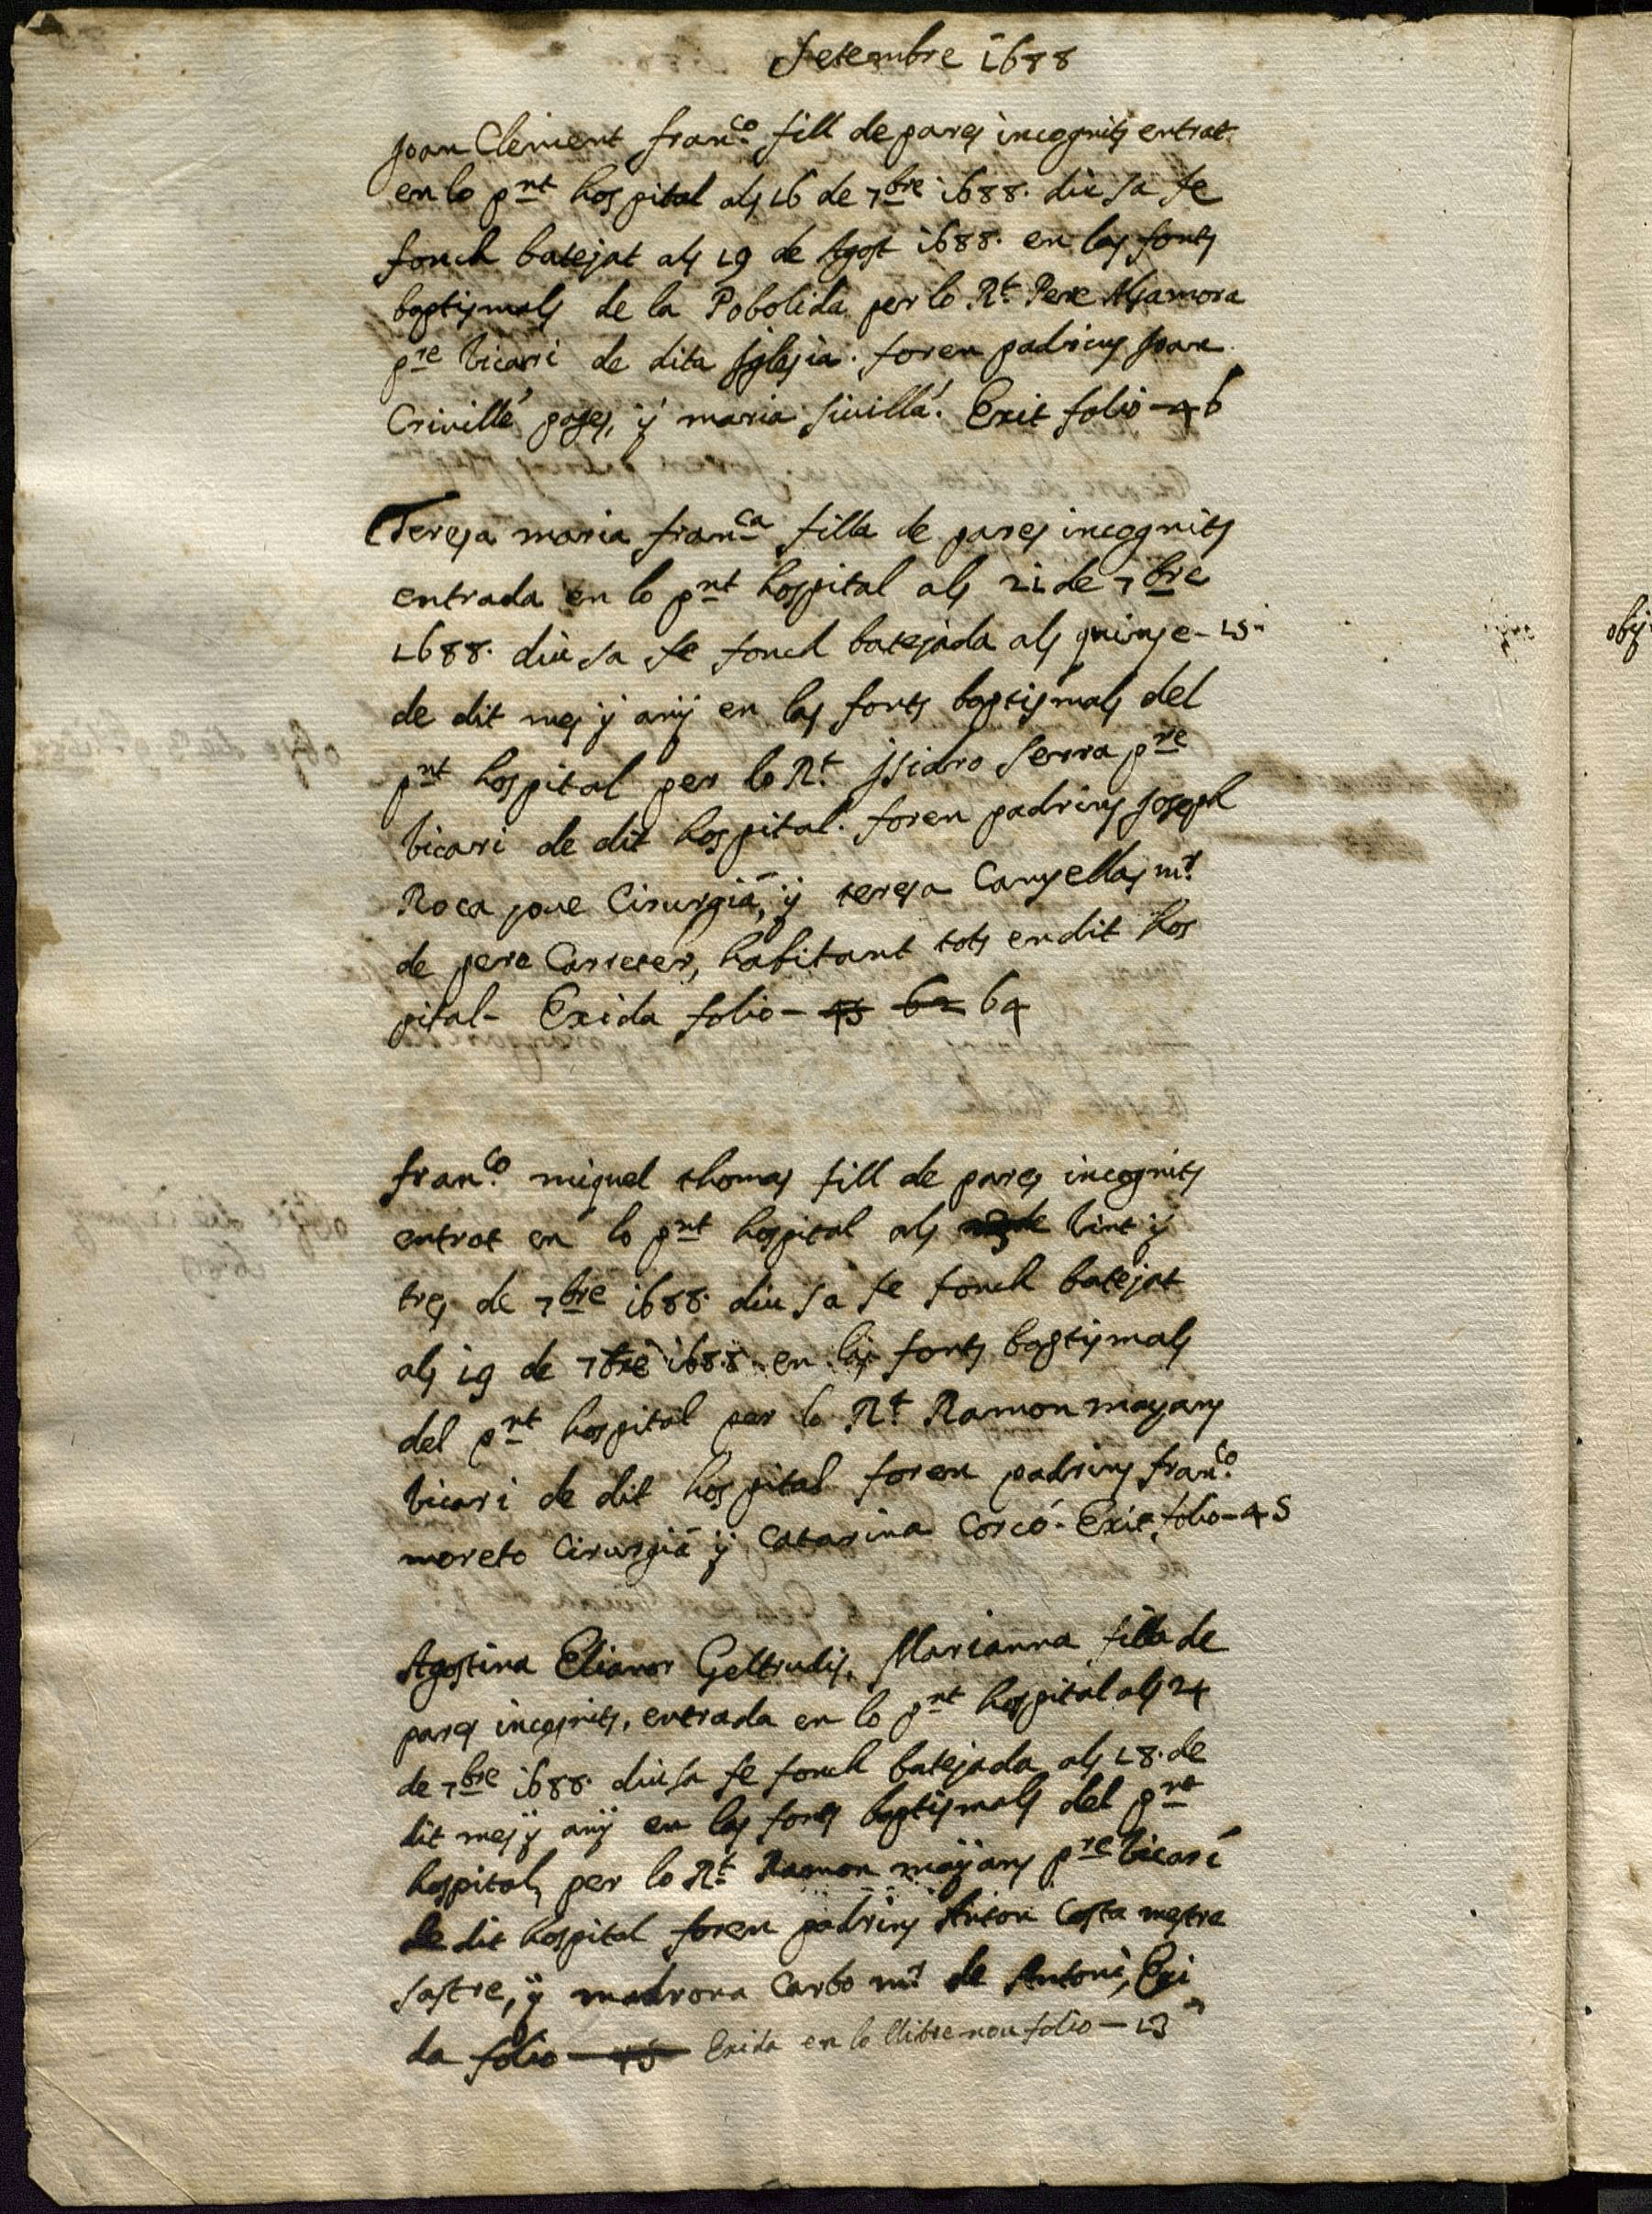 Setembre 1688
Joan Clement fran.co fill de pares incognits entrat
en lo pnt hospital als 16 de 7bre 1688. diu sa fe
fonch batejat als 19 de Agost 1688. en las fonts
baptismals de la Pobolida per lo Rt. Pere Aljamora
pre Vicari de dita Iglesia. foren padrins Joan
Crivillé pages, ÿ maria sivillá. Exit folio - 46
Teresa maria fran.ca filla de pares incognits
entrada en lo pnt hospital als 21 de 7bre
1688. diu sa fe fonch batejada als quinse - 15
de dit mes ÿ anÿ en las fonts baptismals del
pnt hospital per lo Rt. Isidro Serra pre
Vicari de dit hospital. foren padrins Joseph
Roca jove Cirurgiá, ÿ teresa Canyellas mr.
de pere Carreter, habitant tots en dit hos
pital - Exida folio - 45 62 64
fran.co miquel thomas fill de pares incognits
entrat en lo pnt hospital als Vint ÿ
tres de 7bre 1688. diu sa fe fonch batejat
als 19 de 7bre 1688. en las fonts baptismals
del pnt hospital per lo Rt. Ramon mayans
Vicari de dit hospital foren padrins fran.co
moreto Cirurgiá ÿ Catarina Corcó - Exit folio - 45
Agostina Elianor Geltrudis, Marianna filla de
pares incognits, entrada en lo pnt hospital als 24
de 7bre 1688. diu sa fe fonch batejada als 18. de
dit mes ÿ anÿ en las fonts baptismals del pnt
hospital, per lo Rt. Ramon maÿans pre Vicari
de dit hospital foren padrins Anton Costa mestre
sastre, ÿ madrona Carbo mr. de Antoni, Exi
da folio - 45 Exida en lo llibre nou folio - 13